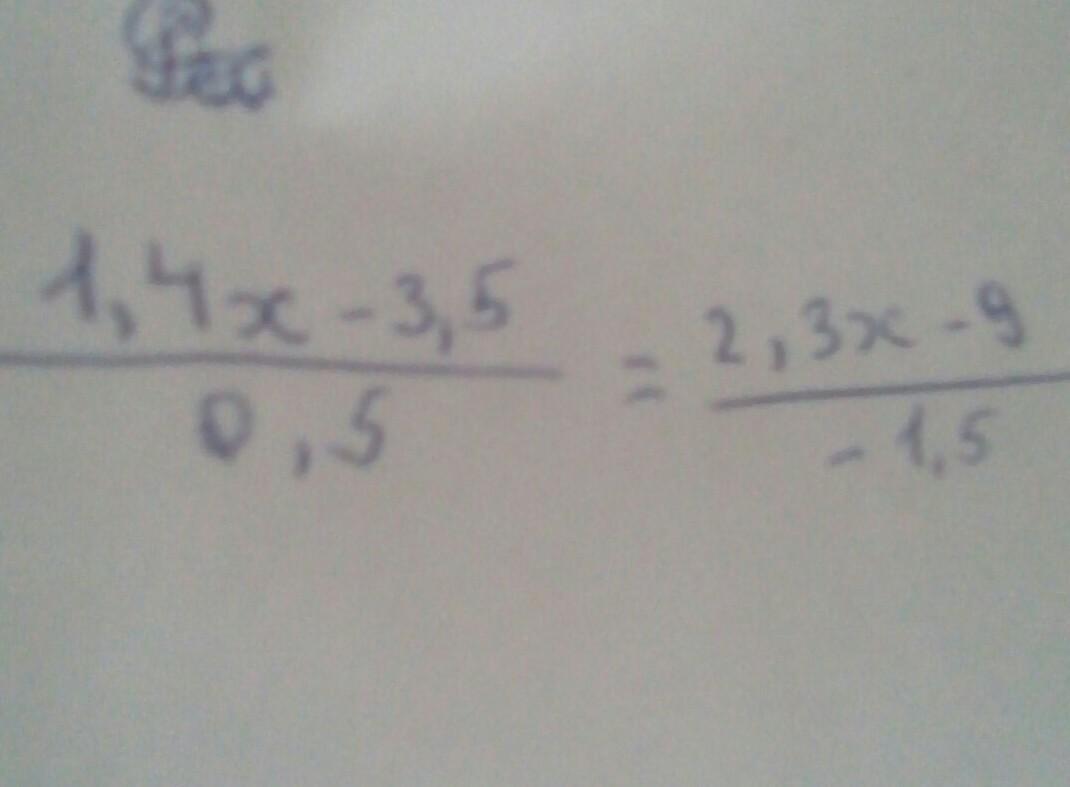 1,4x - 3,5 / 0,5 = 2,3x - 9 / -1,5